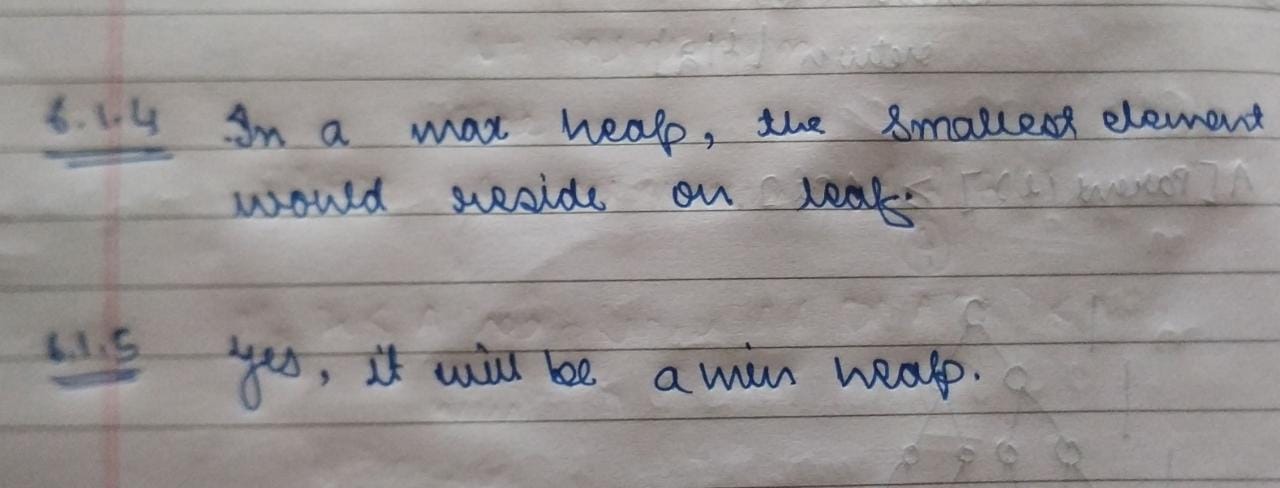 6.1.4 In a max heap, the smallest element
would reside on leaf.
6.1.5 Yes, it will be a min heap.